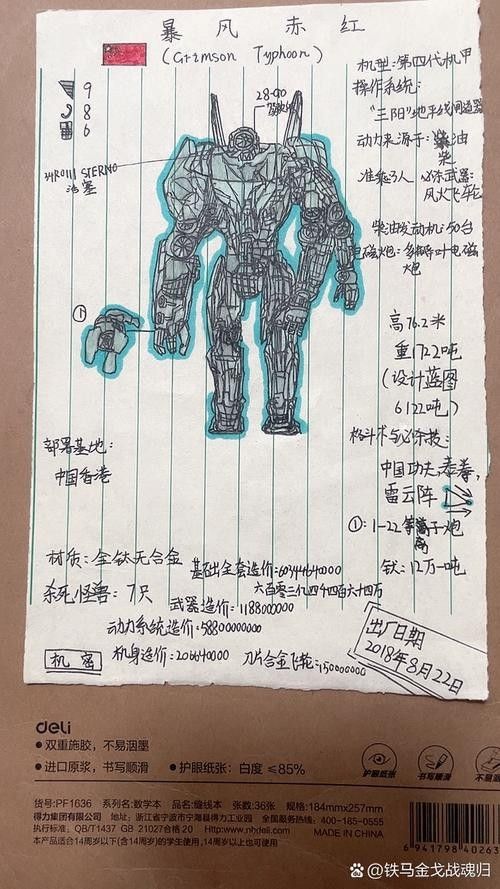 暴风赤红
(Crimson Typhoon)
9
8
6
28-90
机型:第四代机甲
操作系统:
"三阳"地平线闸道器
动力来源于:柴油
柴
准乘3人 必杀武器:
风火飞车轮
柴油发动机:50台
电磁炮:多瓣碎叶电磁
炮
①
高76.2米
重1722吨
(设计蓝图
6122吨)
格斗术与必杀技:
中国功夫,泰拳,
雷云阵
①:1-22 等离子炮
离
钛:12万一吨
部署基地:
中国香港
材质:全钛无合金
基础全套造价:60344640000
六百零三亿四千四百六十四万
杀死怪兽:7只
武器造价:1188000000
动力系统造价:58800000000
机身造价:206640000
刀片合金飞轮:150000000
机密
出厂日期
2018年8月22日
deli
双重施胶,不易洇墨
进口原浆,书写顺滑
护眼纸张:白度≤85%
护眼纸张
书写顺滑
不易洇
货号:PF1636 系列名:数学本 品名:缝线本 张数:36张 规格:184mmx257mm
得力集团有限公司 地址:浙江省宁波市宁海县得力工业园 全国服务热线:400-185-0555
执行标准:QB/T1437 GB 21027合格 Http://www.nbdeli.com MADE IN CHINA
本产品适合14周岁以下(含14周岁)的学生使用,14周岁以上也可使用
6 941798 40263
@铁马金戈战魂归